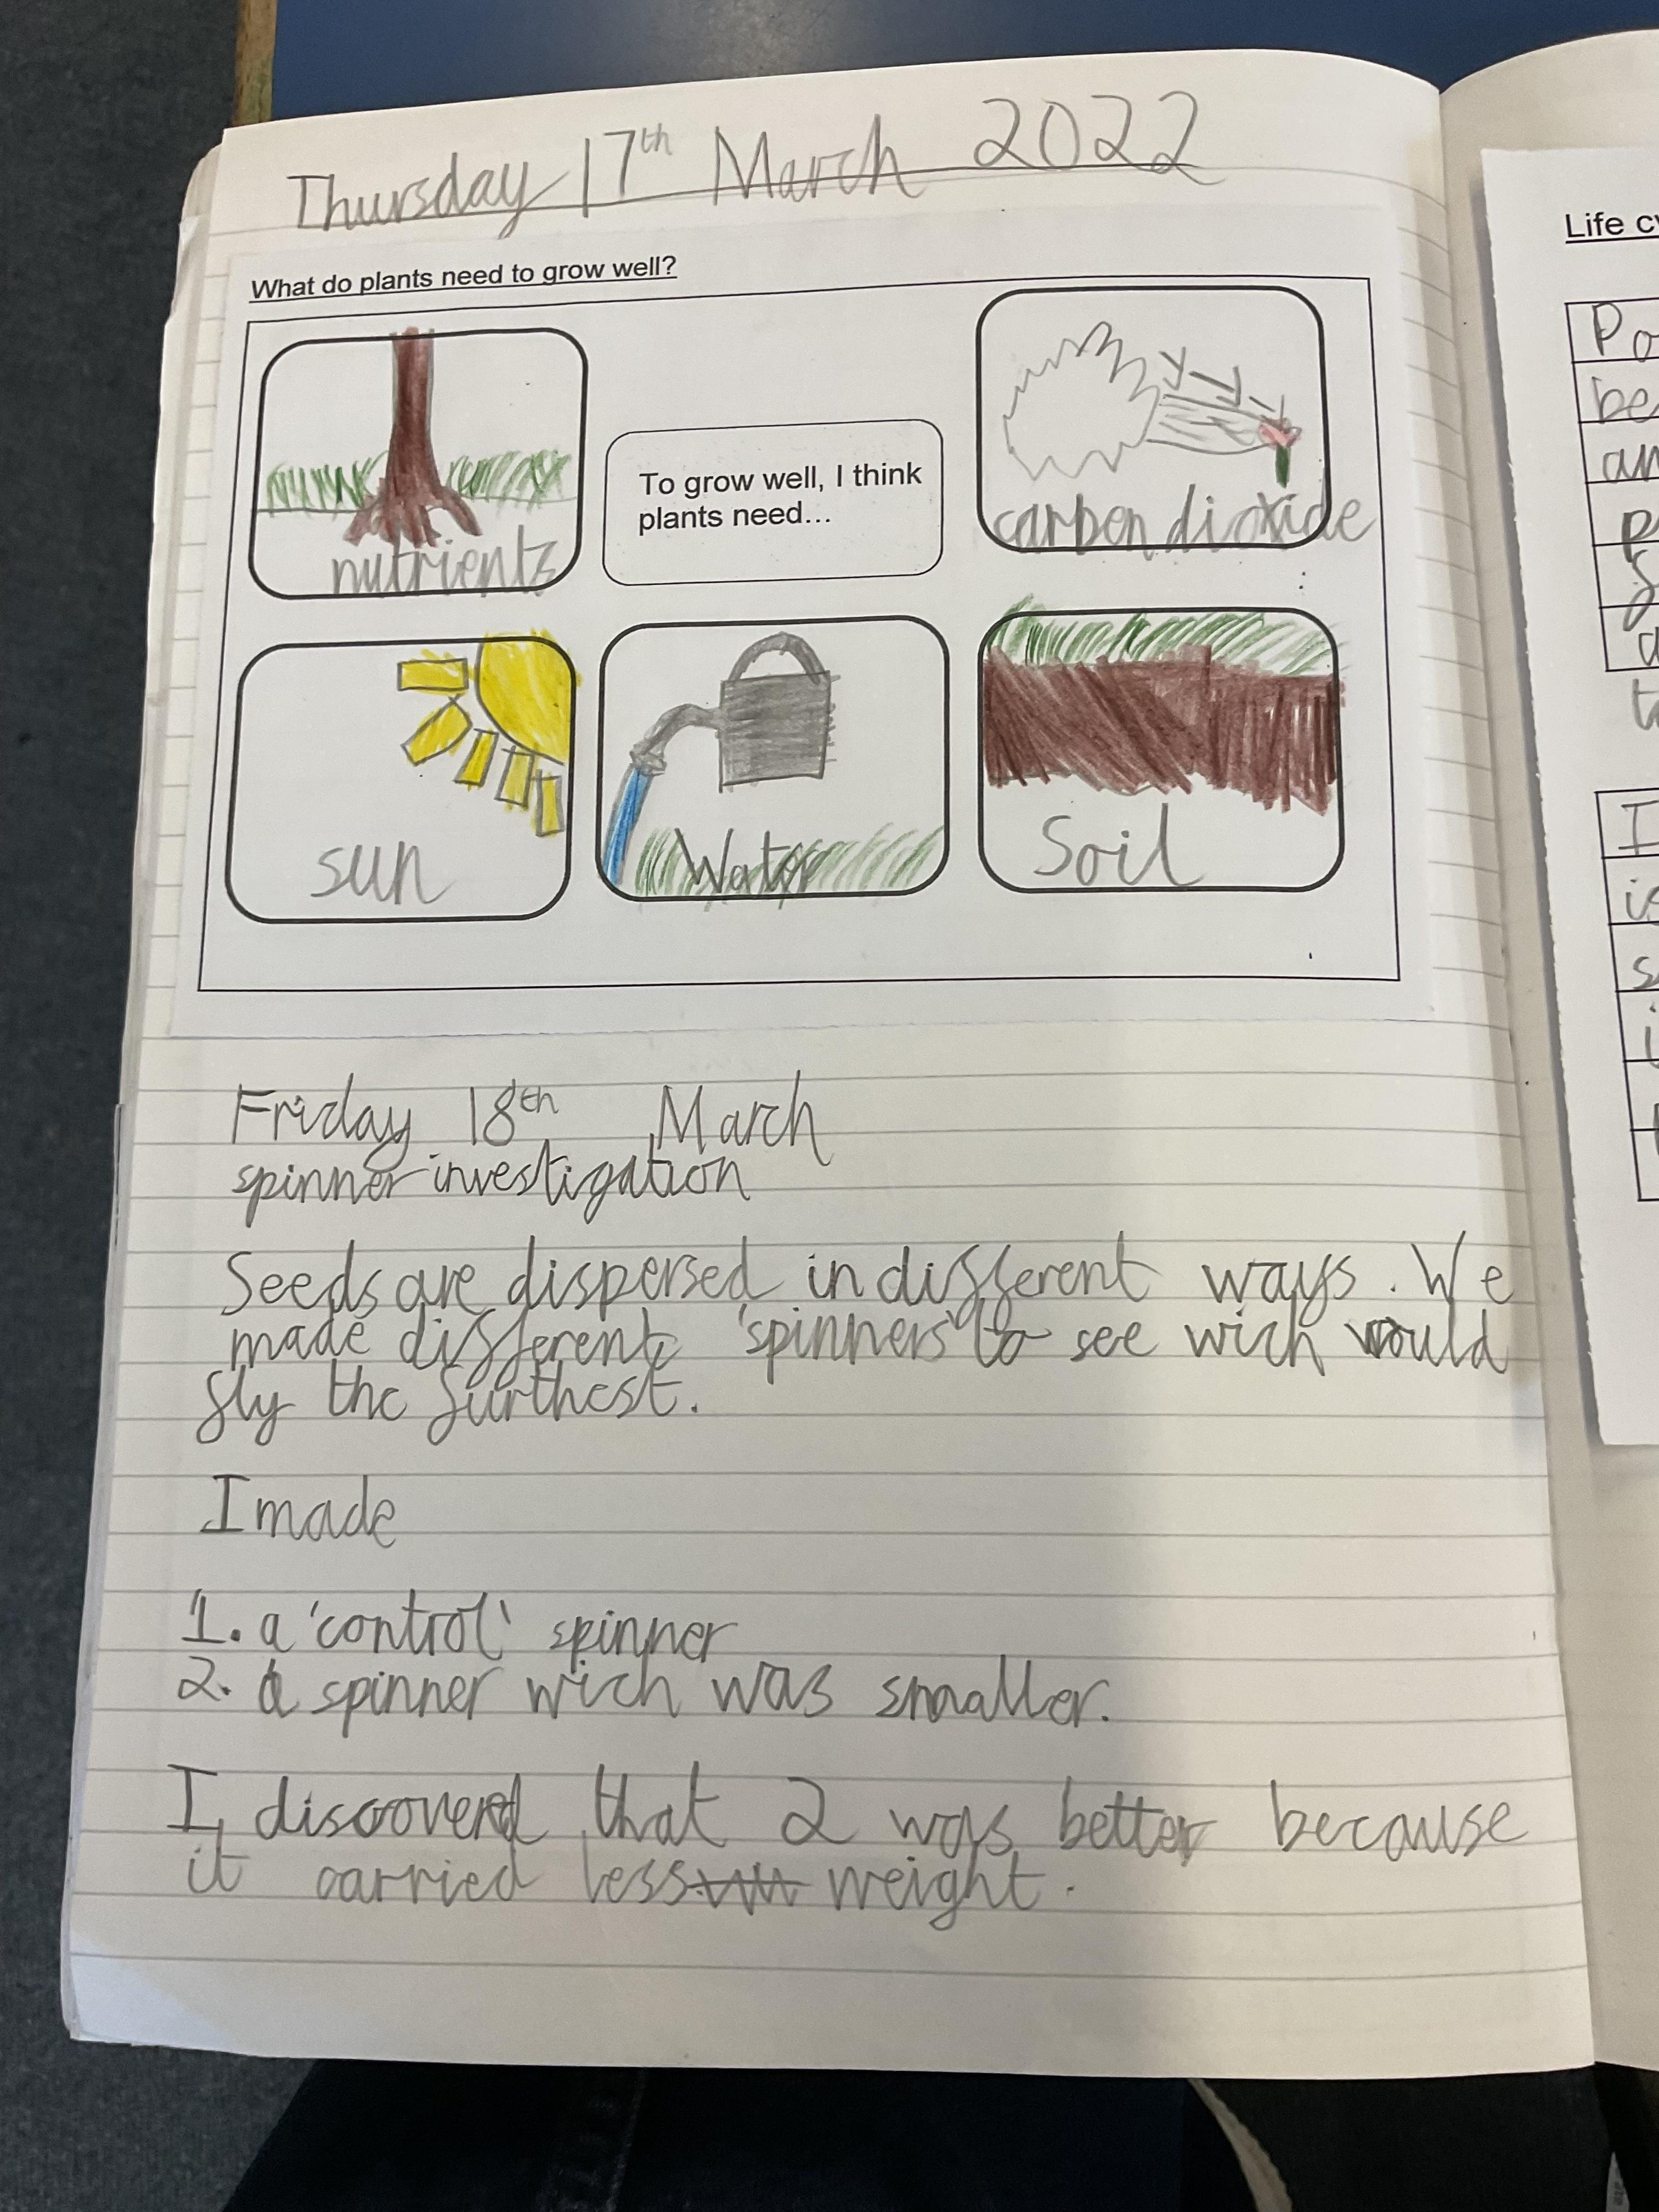 Thursday 17th March 2022
What do plants need to grow well?
nutrients
To grow well, I think
plants need...
carbon dioxide
sun
Water
Soil
Friday 18th March
spinner investigation
Seeds are dispersed in different ways. We
made different 'spinners' to see wich would
fly the furthest.
I made
1. a 'control' spinner
2. a spinner wich was smaller.
I discovered that 2 was better because
it carried less weight.
Life
Po
be
an
I
is